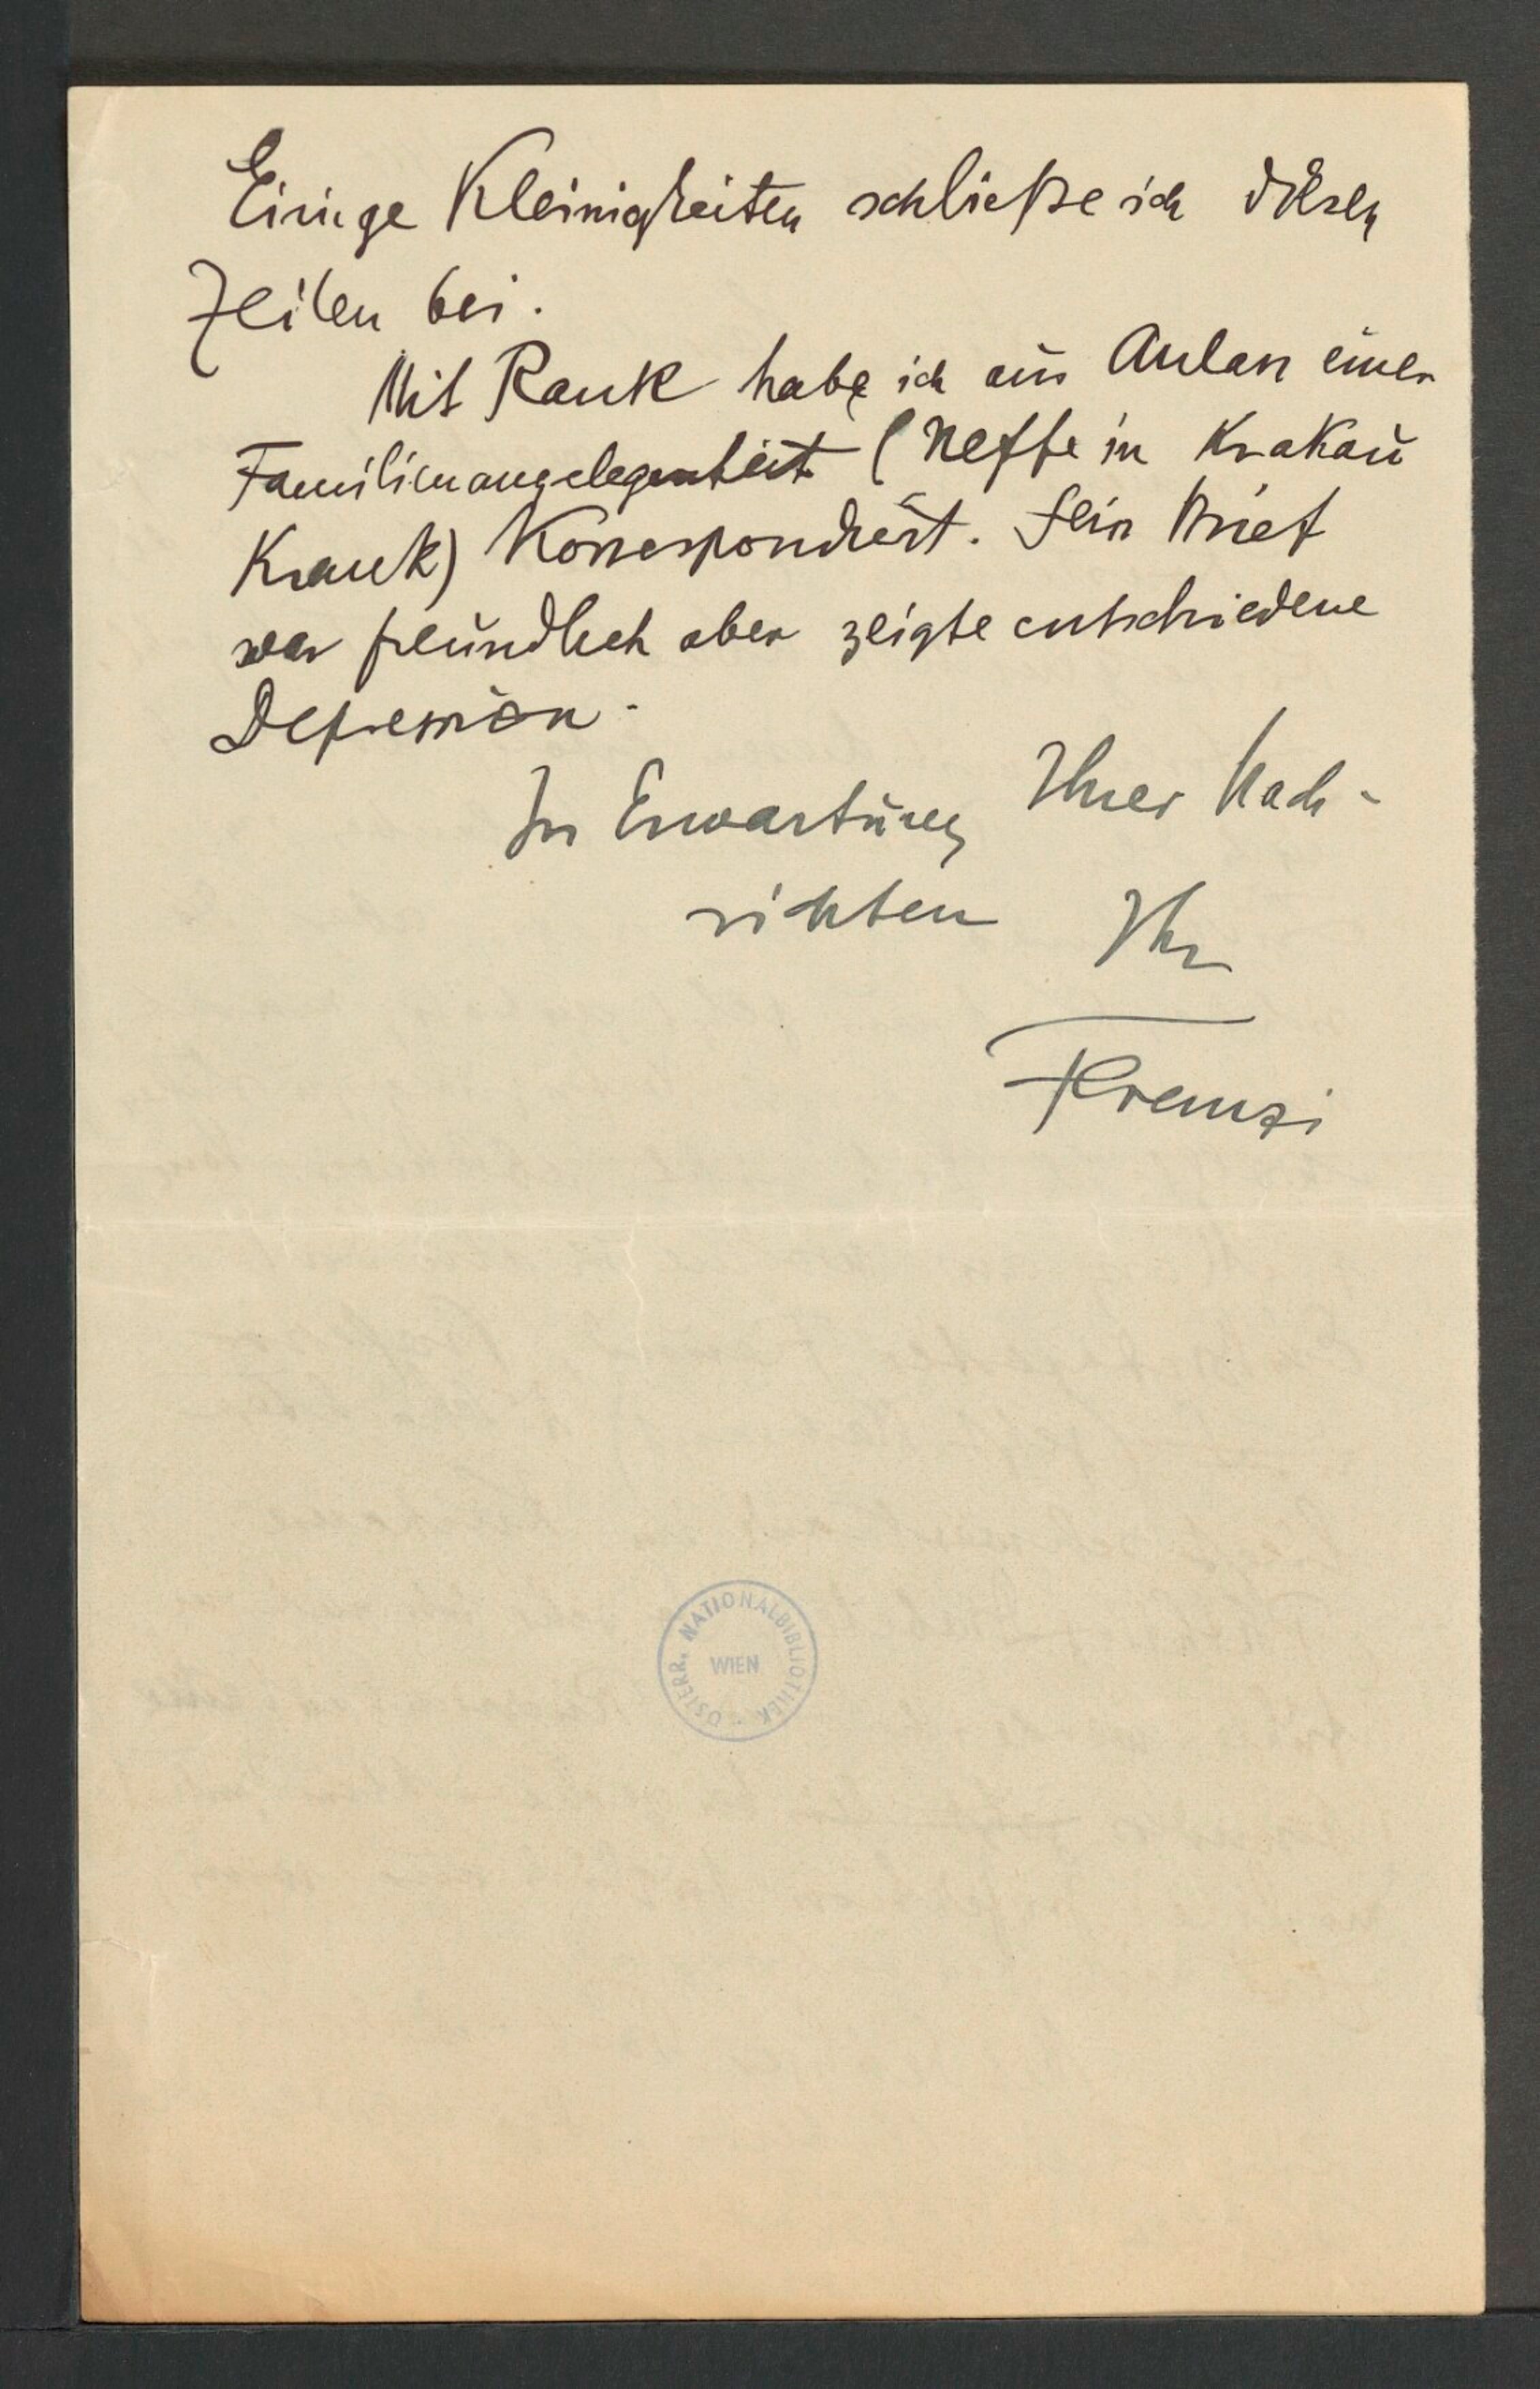 Einige Kleinigkeiten schließe ich diesen
Zeilen bei.
Mit Rank habe ich aus Anlass einer
Familienangelegenheit (Neffe in Krakau
Krank) Korrespondiert. Sein Brief
war freundlich aber zeigte entschiedene
Depression.
In Erwartung Ihrer Nach-
richten Ihr
Ferenczi
ÖSTERR. NATIONALBIBLIOTHEK
WIEN